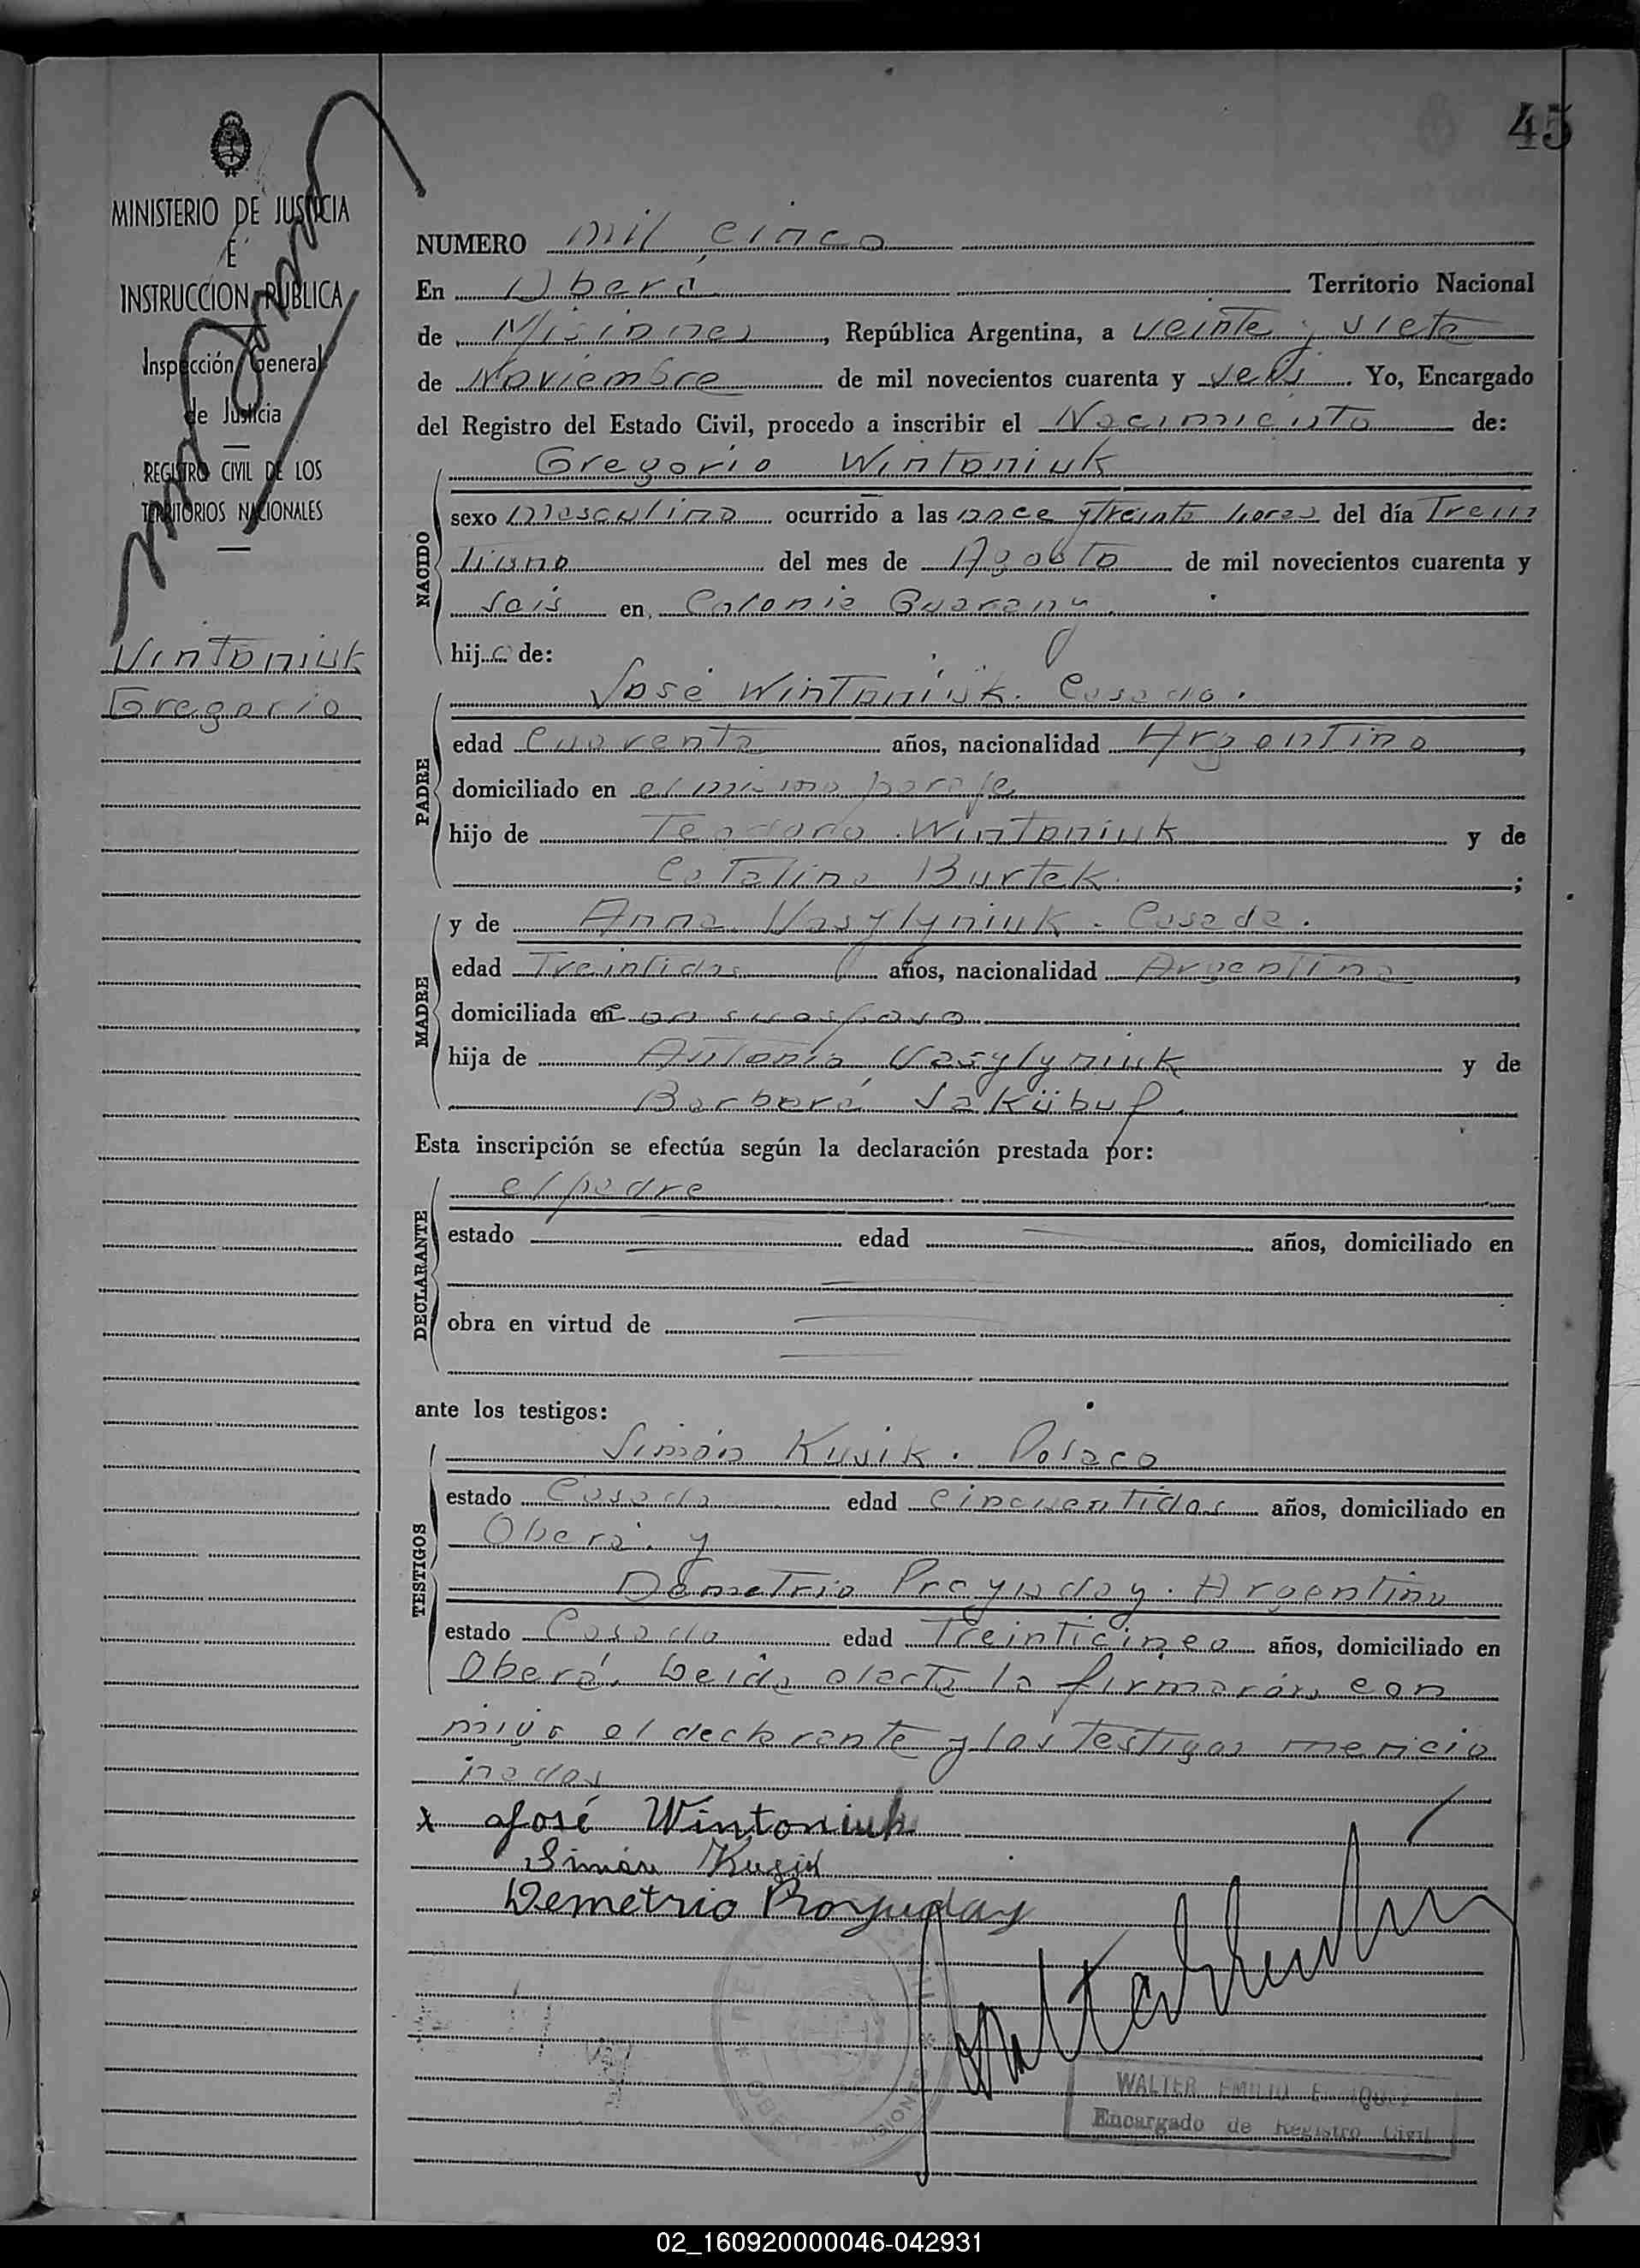 45
MINISTERIO DE JUSTICIA
É
INSTRUCCION PUBLICA
Inspección General
de Justicia
REGISTRO CIVIL DE LOS
TERRITORIOS NACIONALES
Wintoniuk
Gregorio
NUMERO mil cinco
En Oberá Territorio Nacional
de Misiones, República Argentina, a veinte y siete
de Noviembre de mil novecientos cuarenta y seis. Yo, Encargado
del Registro del Estado Civil, procedo a inscribir el Nacimiento de:
NACIDO
Gregorio Wintoniuk
sexo masculino ocurrido a las once y treinta horas del día Trein
tiuno del mes de Agosto de mil novecientos cuarenta y
seis en, Colonia Guarany.
hijo de:
PADRE
José Wintoniuk. Casado.
edad Cuarenta años, nacionalidad Argentino,
domiciliado en el mismo paraje
hijo de Teodoro Wintoniuk y de
Catalina Burtek.;
MADRE
y de Anna Vasylyniuk. Casada.
edad Treintidos años, nacionalidad Argentina,
domiciliada en con su esposo
hija de Antonio Vasylyniuk y de
Barbara
Esta inscripción se efectúa según la declaración prestada por:
DECLARANTE
el padre
estado edad años, domiciliado en
obra en virtud de
ante los testigos:
TESTIGOS
Simón Kusik. Polaco
estado Casado edad cincuentidos años, domiciliado en
Oberá. y
Demetrio Argentino
estado Casado edad Treinticinco años, domiciliado en
Oberá. Leida el acta la firmarón con
migo el declarante y los testigos mencio
nados
x José Wintoniuk
Simón Kusik
Demetrio
WALTER EMILIO ENRIQUEZ
Encargado de Registro Civil
OBERA - MISIONES
02_160920000046-042931